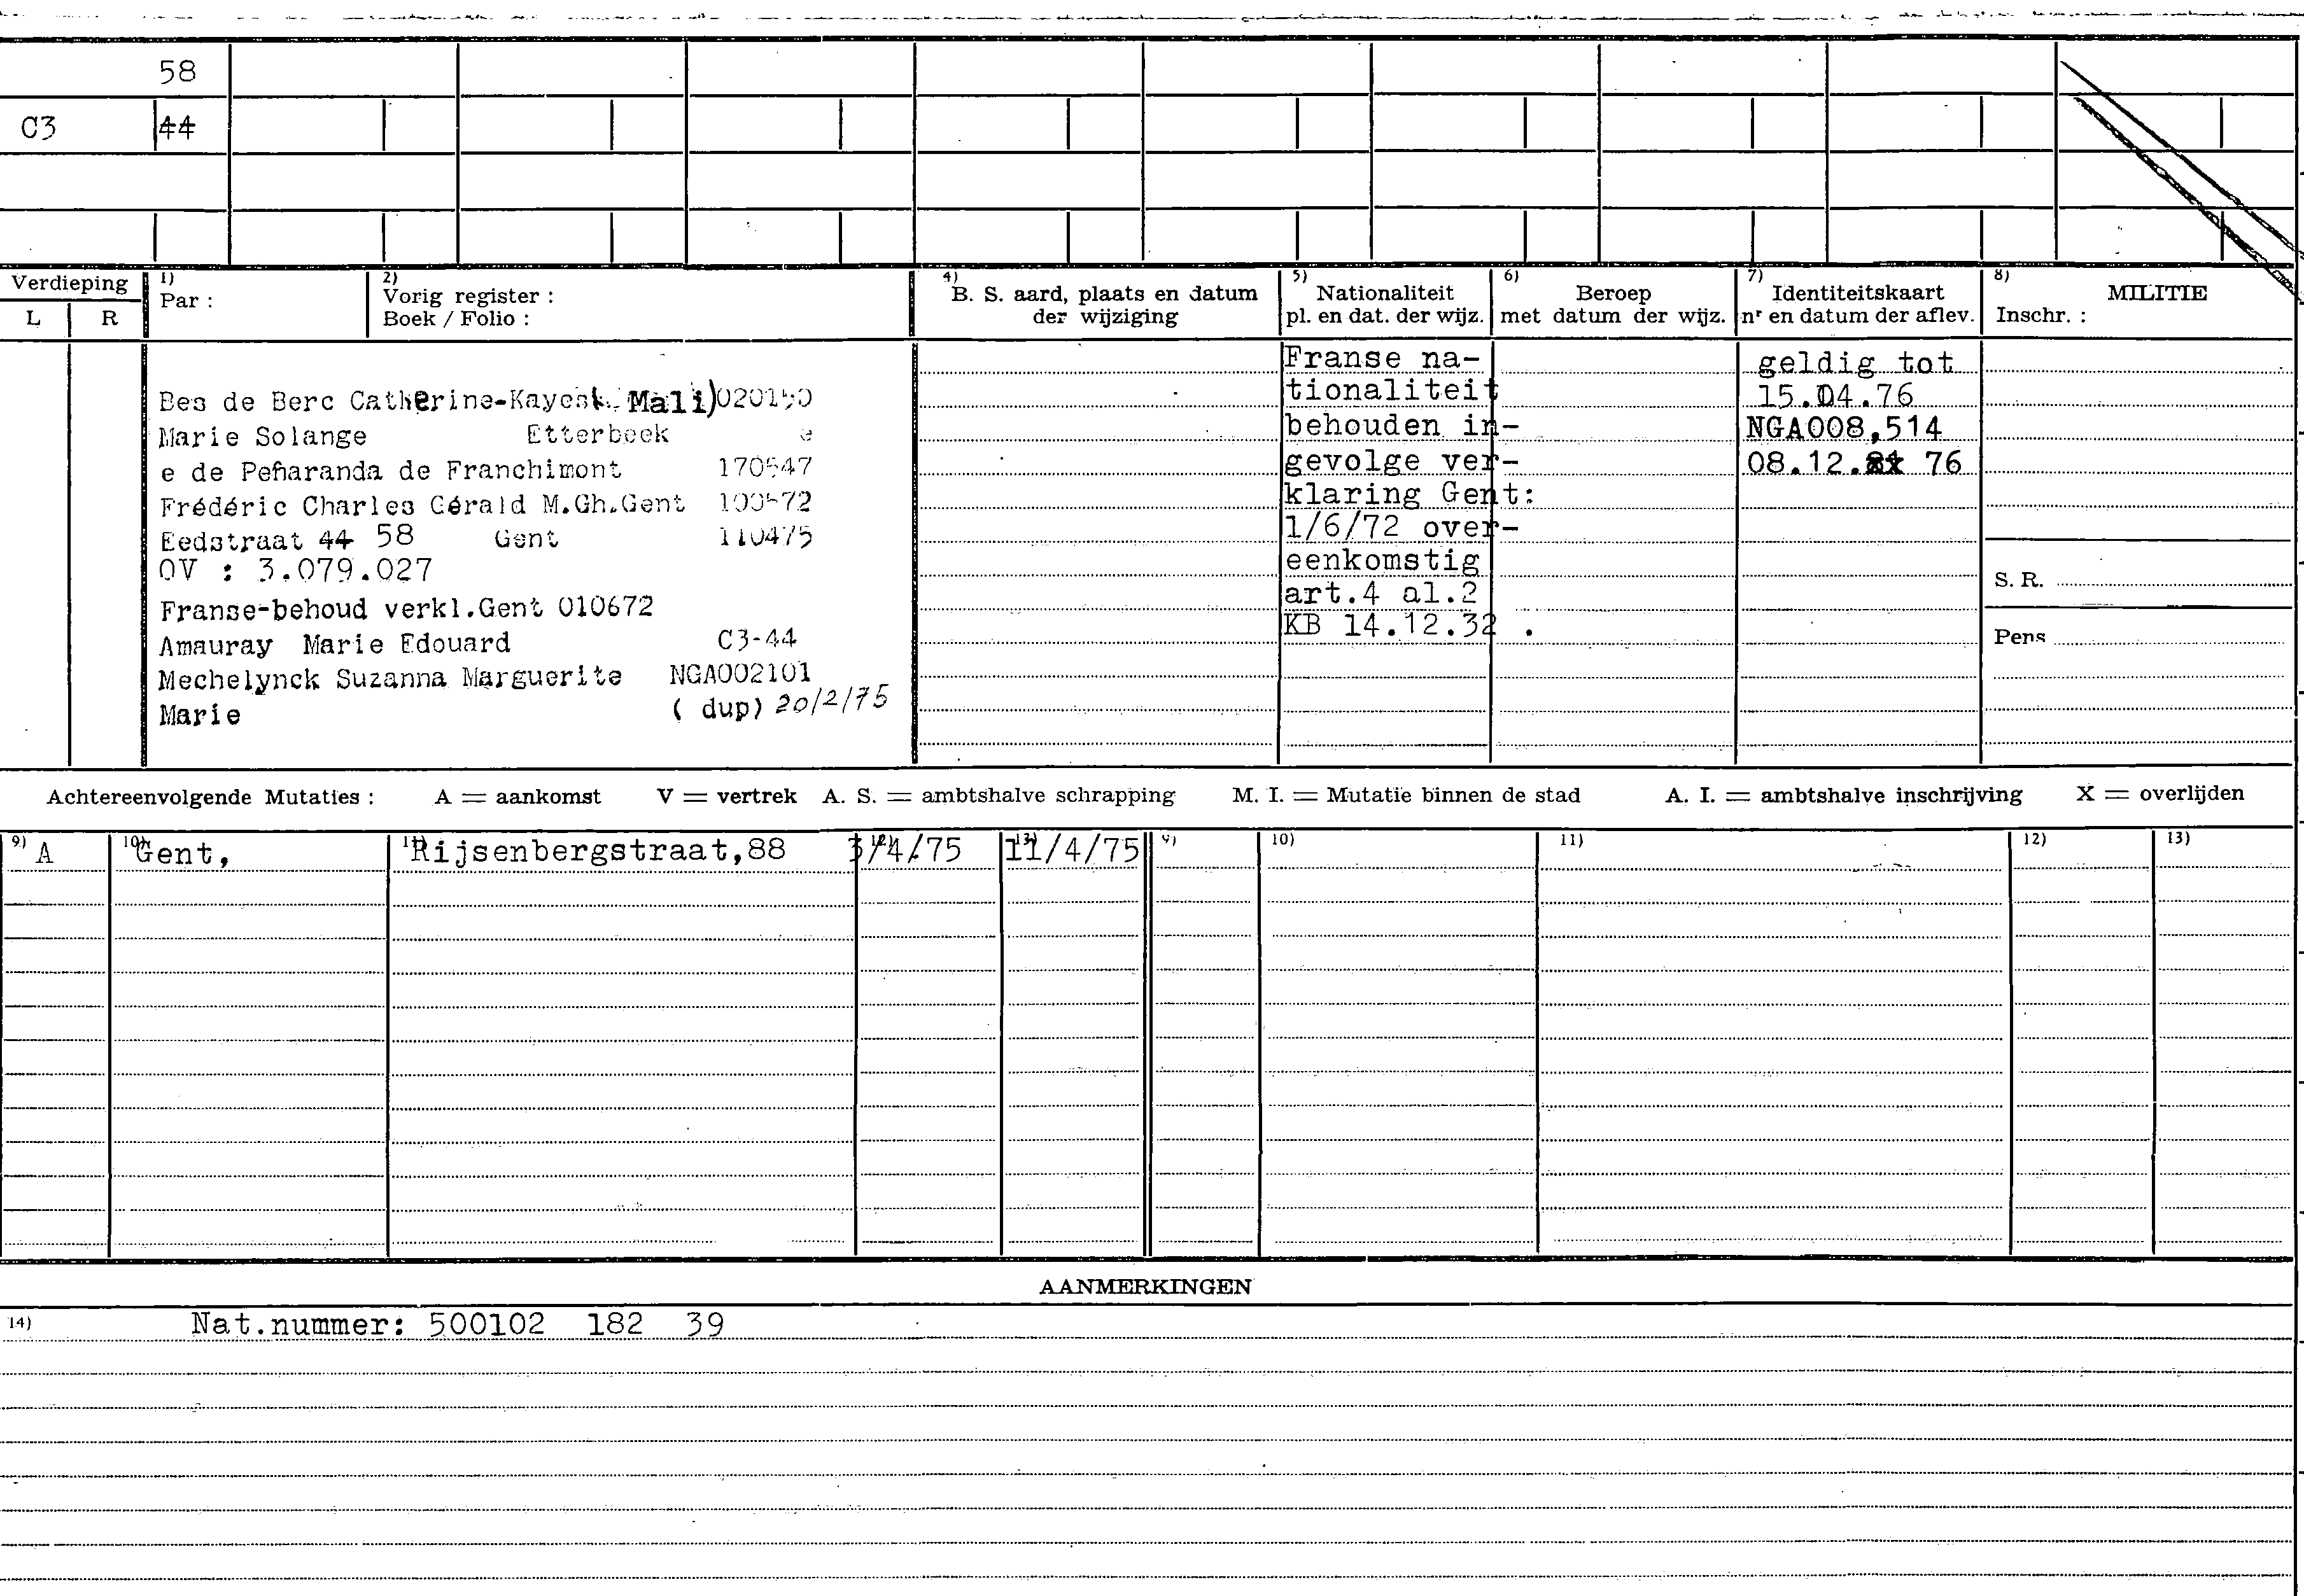 58
C3 44
Verdieping
L R
1)
Par :
2)
Vorig register :
Boek / Folio :
4)
B. S. aard, plaats en datum
der wijziging
5)
Nationaliteit
pl. en dat. der wijz.
6)
Beroep
met datum der wijz.
7)
Identiteitskaart
nr en datum der aflev.
8)
MILITIE
Inschr. :
Bes de Berc Catherine-Kayes Mali)
Marie Solange Etterbeek e
e de Peñaranda de Franchimont 170547
Frédéric Charles Gérald M.Gh.Gent 100572
Eedstraat 44 58 Gent 110475
OV : 3.079.027
Franse-behoud verkl.Gent 010672
Amauray Marie Edouard C3-44
Mechelynck Suzanna Marguerite NGA002101
Marie ( dup) 20/2/75
Franse na-
tionaliteit
behouden in-
gevolge ver-
klaring Gent:
1/6/72 over-
eenkomstig
art.4 al.2
KB 14.12.32 .
geldig tot
15.04.76
NGA008,514
08.12. 76
S. R.
Pens
Achtereenvolgende Mutaties : A = aankomst V = vertrek A. S. = ambtshalve schrapping M. I. = Mutatie binnen de stad A. I. = ambtshalve inschrijving X = overlijden
9) 10) 11) 12) 13) 9) 10) 11) 12) 13)
A Gent, Rijsenbergstraat,88 3/4/75 11/4/75
AANMERKINGEN
14) Nat.nummer: 500102 182 39